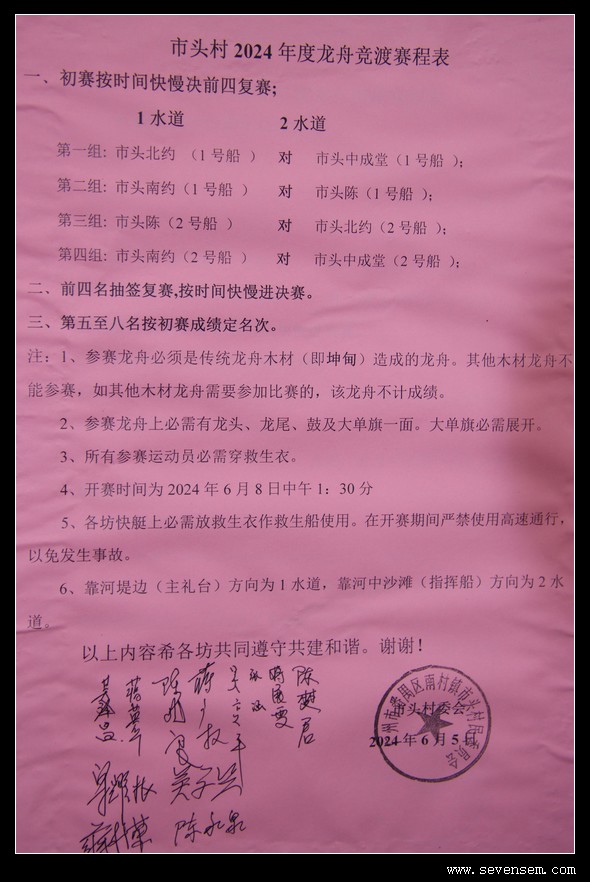 市头村 2024 年度龙舟竞渡赛程表
一、初赛按时间快慢决前四复赛;
1 水道 2 水道
第一组: 市头北约 （1 号船 ） 对 市头中成堂（1 号船 ）;
第二组: 市头南约（1 号船 ） 对 市头陈（1 号船 ）;
第三组: 市头陈（2 号船 ） 对 市头北约（2 号船 ）;
第四组: 市头南约（2 号船 ） 对 市头中成堂（2 号船 ）;
二、前四名抽签复赛,按时间快慢进决赛。
三、第五至八名按初赛成绩定名次。
注: 1、参赛龙舟必须是传统龙舟木材（即坤甸）造成的龙舟。其他木材龙舟不
能参赛，如其他木材龙舟需要参加比赛的，该龙舟不计成绩。
2、参赛龙舟上必需有龙头、龙尾、鼓及大单旗一面。大单旗必需展开。
3、所有参赛运动员必需穿救生衣。
4、开赛时间为 2024 年 6 月 8 日中午 1：30 分
5、各坊快艇上必需放救生衣作救生船使用。在开赛期间严禁使用高速通行，
以免发生事故。
6、靠河堤边（主礼台）方向为 1 水道，靠河中沙滩（指挥船）方向为 2 水
道。
以上内容希各坊共同遵守共建和谐。谢谢！
市头村委会
2024 年 6 月 5 日
州市番禺区南村镇市头村民委员会
陈永泉
www.sevensem.com